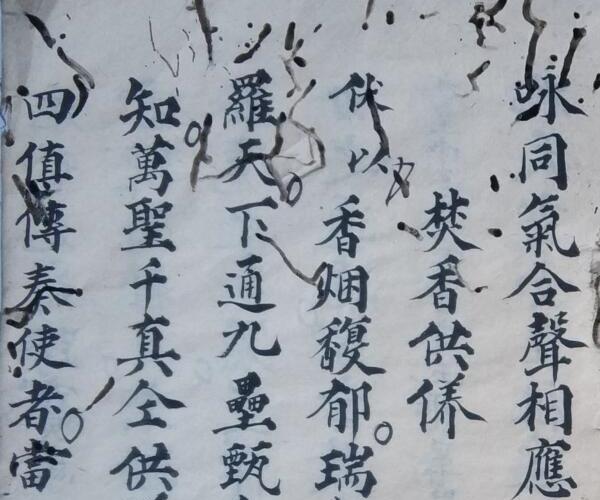 咏同氣合聲相應
焚香供养
伏以香烟馥郁瑞
羅天下通九壘甄
知萬聖千真仝供
四值傳奏使者當